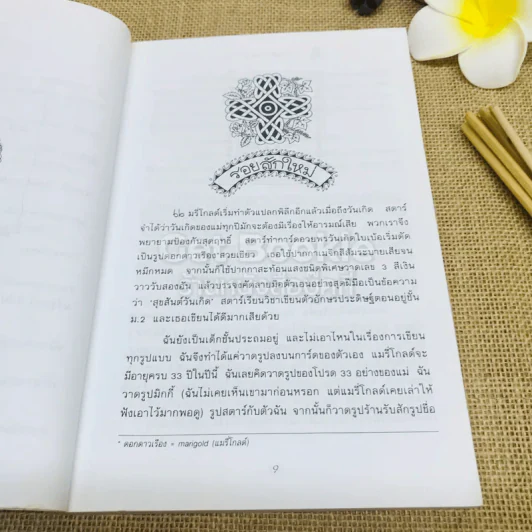 รอยสักใหม่
แมรี่โกลด์เริ่มทำตัวแปลกพิลึกอีกแล้วเมื่อถึงวันเกิด สตาร์
จำได้ว่าวันเกิดของแม่ทุกปีมักจะต้องมีเรื่องให้อารมณ์เสีย พวกเราจึง
พยายามป้องกันสุดฤทธิ์ สตาร์ทำการ์ดอวยพรวันเกิดใบเบ้อเริ่มตัด
เป็นรูปดอกดาวเรือง* สวยเชียว เธอใช้ปากกาเมจิกสีส้มระบายเสียจน
หมึกหมด จากนั้นก็ใช้ปากกาสะท้อนแสงชนิดพิเศษวาดเลข 3 สีเงิน
วาววับสองอัน แล้วบรรจงคัดลายมือตัวเอนอย่างสุดฝีมือเป็นข้อความ
ว่า 'สุขสันต์วันเกิด' สตาร์เรียนวิชาเขียนตัวอักษรประดิษฐ์ตอนอยู่ชั้น
ม.2 และเธอเขียนได้ดีมากเสียด้วย
ฉันยังเป็นเด็กชั้นประถมอยู่ และไม่เอาไหนในเรื่องการเขียน
ทุกรูปแบบ ฉันจึงทำได้แค่วาดรูปลงบนการ์ดของตัวเอง แมรี่โกลด์จะ
มีอายุครบ 33 ปีในปีนี้ ฉันเลยคิดวาดรูปของโปรด 33 อย่างของแม่ ฉัน
วาดรูปมิกกี้ (ฉันไม่เคยเห็นเขามาก่อนหรอก แต่แมรี่โกลด์เคยเล่าให้
ฟังเอาไว้มากพอดู) รูปสตาร์กับตัวฉัน จากนั้นก็วาดรูปร้านรับสักรูปชื่อ
* ดอกดาวเรือง = marigold (แมรี่โกลด์)
9